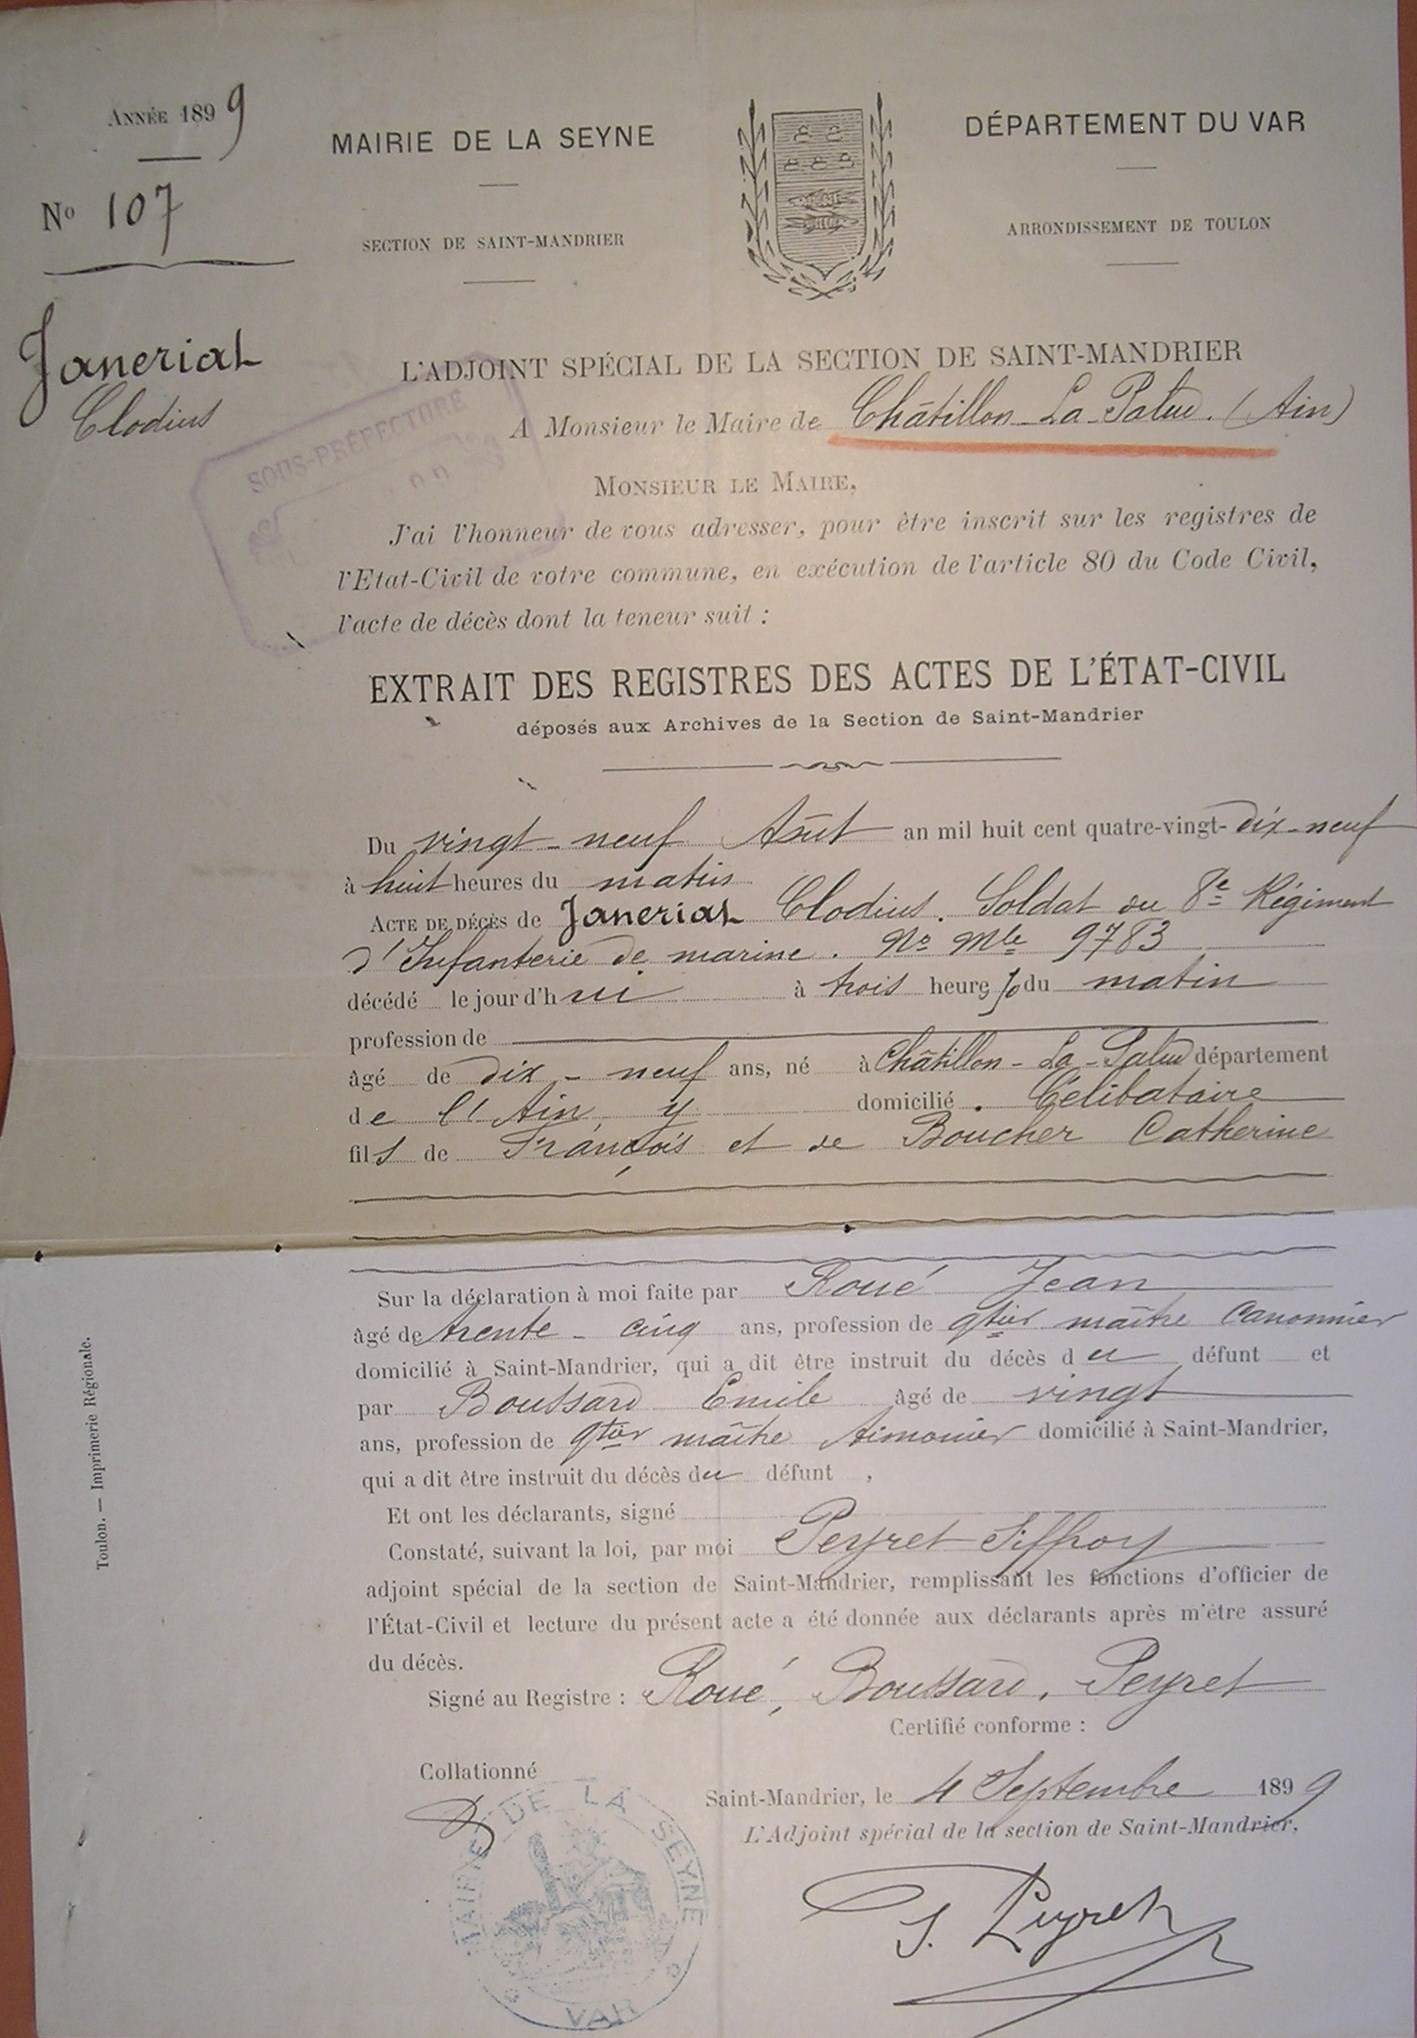 ANNÉE 1899
MAIRIE DE LA SEYNE
DÉPARTEMENT DU VAR
No 107
SECTION DE SAINT-MANDRIER
ARRONDISSEMENT DE TOULON
Janeriat
Clodius
L'ADJOINT SPÉCIAL DE LA SECTION DE SAINT-MANDRIER
A Monsieur le Maire de Châtillon-La-Palud. (Ain)
SOUS-PRÉFECTURE
MONSIEUR LE MAIRE,
J'ai l'honneur de vous adresser, pour être inscrit sur les registres de
l'Etat-Civil de votre commune, en exécution de l'article 80 du Code Civil,
l'acte de décès dont la teneur suit :
EXTRAIT DES REGISTRES DES ACTES DE L'ÉTAT-CIVIL
déposés aux Archives de la Section de Saint-Mandrier
Du vingt-neuf Août an mil huit cent quatre-vingt-dix-neuf
à huit heures du matin
ACTE DE DÉCÈS de Janeriat Clodius. Soldat au 8e Régiment
d'Infanterie de marine. No Mle 9783
décédé le jour d'hui à trois heures ½ du matin
profession de
âgé de dix-neuf ans, né à Châtillon-La-Palud département
de l'Ain y domicilié. Célibataire
fils de François et de Boucher Catherine
Sur la déclaration à moi faite par Roué Jean
âgé de trente-cinq ans, profession de qtier maître canonnier
domicilié à Saint-Mandrier, qui a dit être instruit du décès du défunt et
par Boussard Emile âgé de vingt
ans, profession de qtier maître timonier domicilié à Saint-Mandrier,
qui a dit être instruit du décès du défunt ,
Et ont les déclarants, signé
Constaté, suivant la loi, par moi Peyret Siffroy
adjoint spécial de la section de Saint-Mandrier, remplissant les fonctions d'officier de
l'État-Civil et lecture du présent acte a été donnée aux déclarants après m'être assuré
du décès.
Signé au Registre : Roué, Boussard, Peyret
Certifié conforme :
Collationné
Saint-Mandrier, le 4 Septembre 1899
L'Adjoint spécial de la section de Saint-Mandrier,
S. Peyret
MAIRIE DE LA SEYNE
VAR
Toulon. — Imprimerie Régionale.